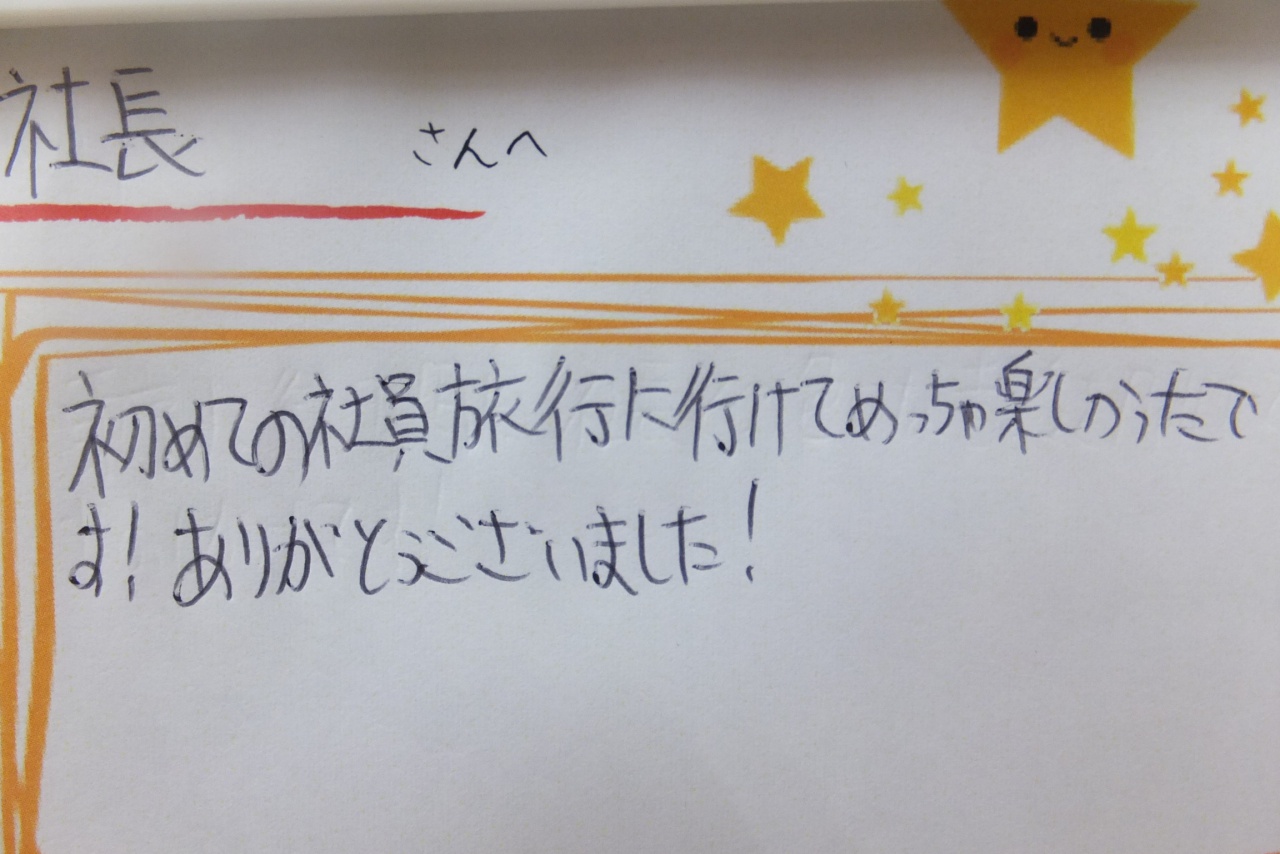 社長 さんへ
初めての社員旅行に行けてめっちゃ楽しかったで
す！ありがとうございました！